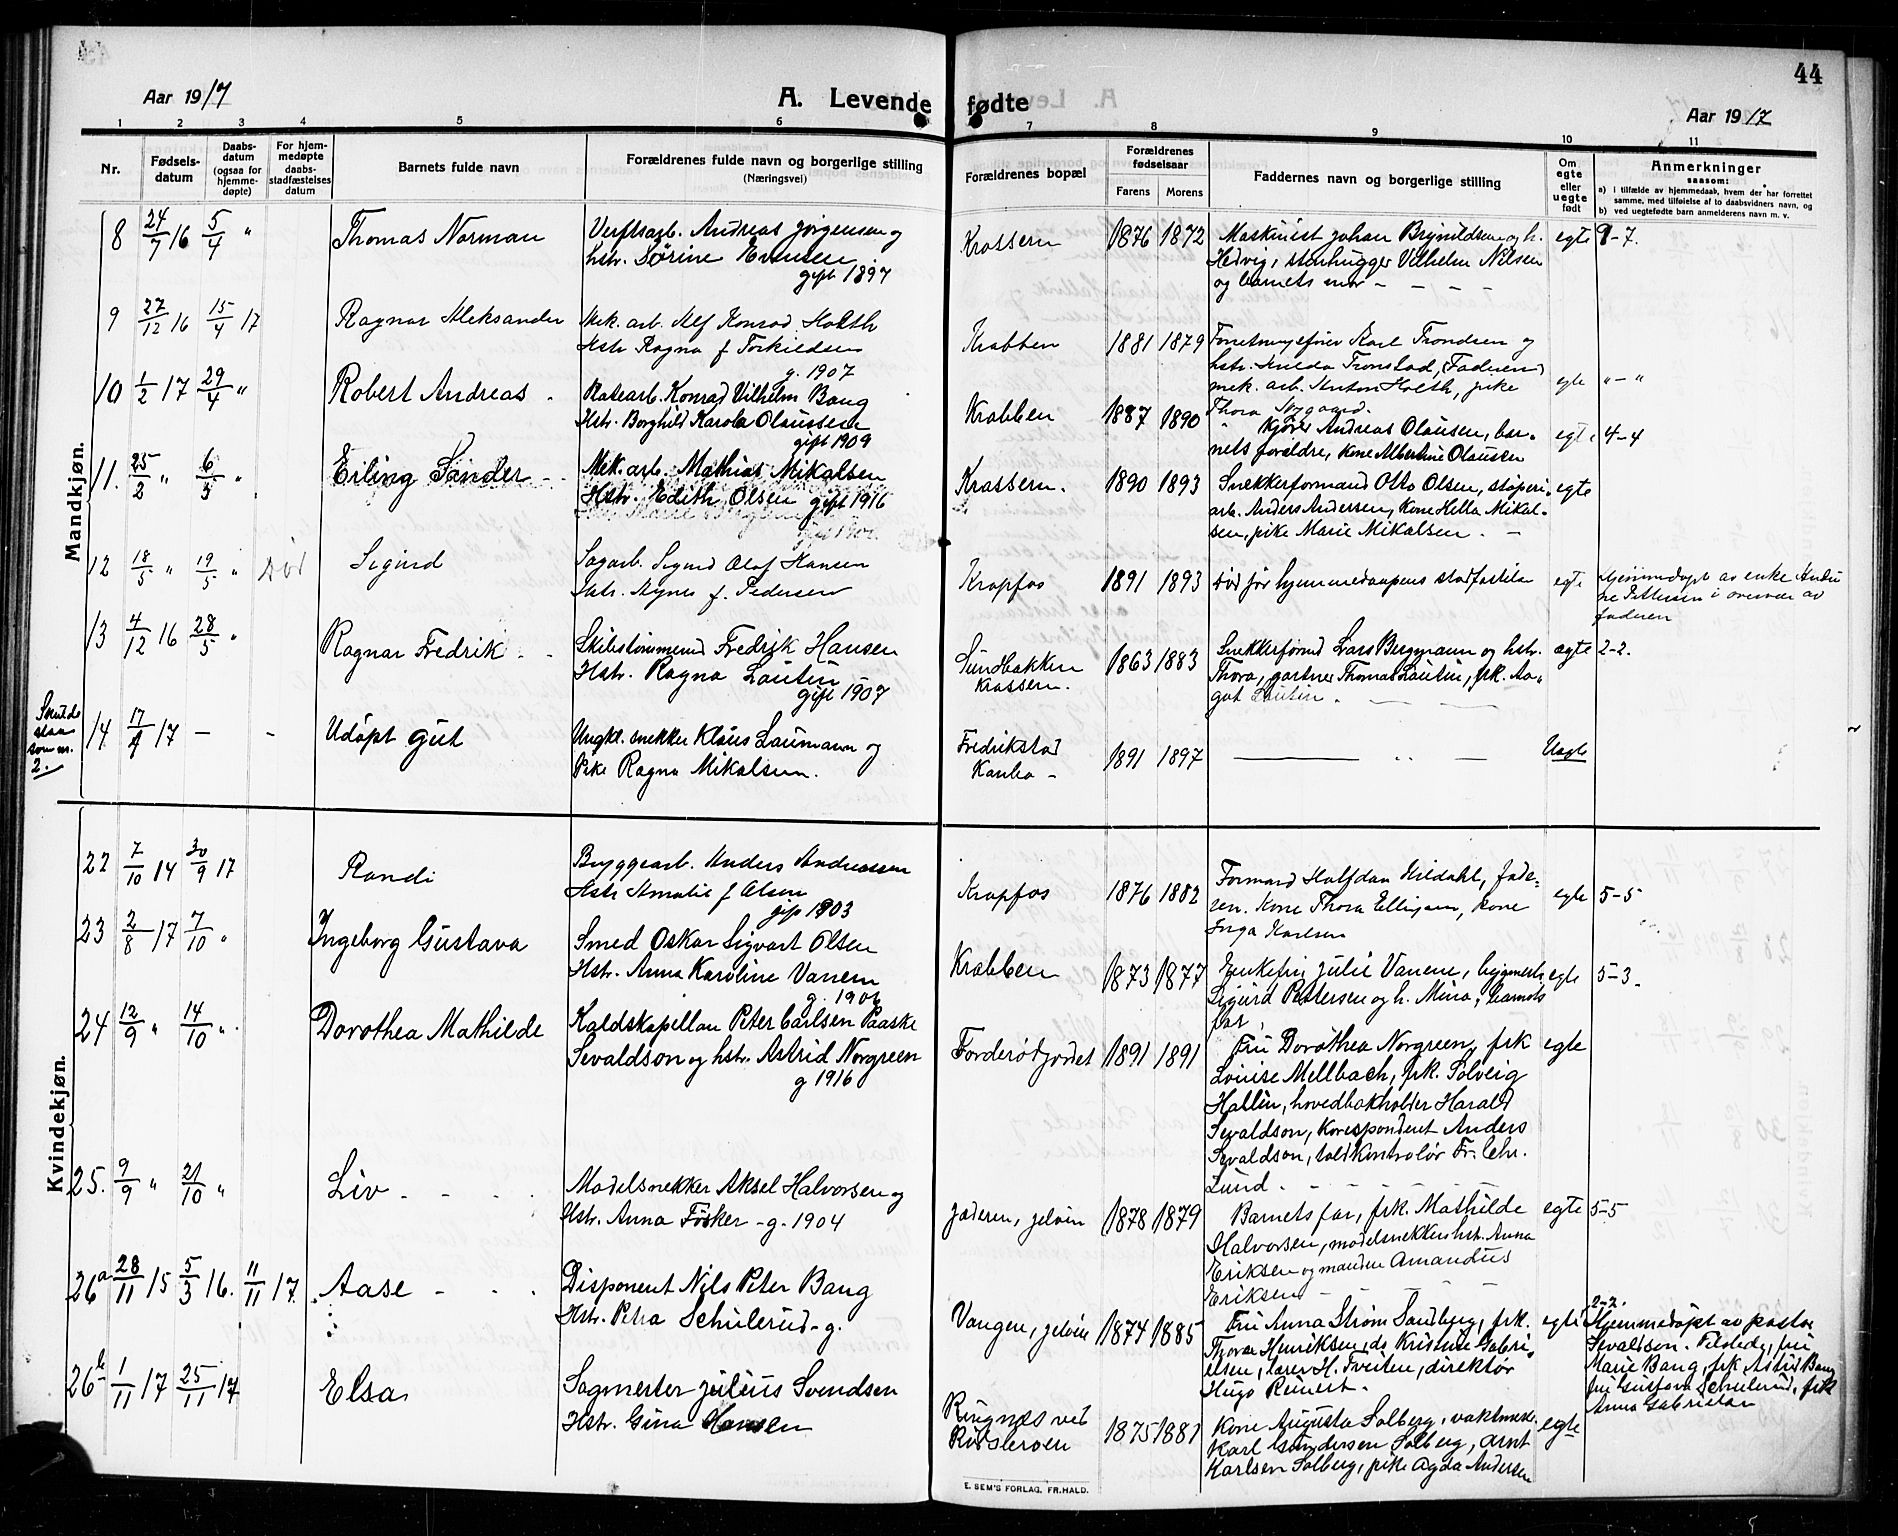 44
Aar 1917
A. Levende fødte
Aar 1917
1 2 3 4 5 6 7 8 9 10 11
Nr.
Fødselsdatum
Daabsdatum (ogsaa for hjemmedøpte)
For hjemmedøpte daabsstadfæstelses datum
Barnets fulde navn
Forældrenes fulde navn og borgerlige stilling
(Næringsvei)
Forældrenes bopæl
Forældrenes fødselsaar
Farens Morens
Faddernes navn og borgerlige stilling
Om egte eller uegte født
Anmerkninger
saasom:
a) i tilfælde av hjemmedaab, hvem der har forrettet samme, med tilføielse af to daabsvidners navn, og
b) ved uegtefødte barn anmelderens navn m. v.
Mandkjøn.
8 24/7 16 5/4 " Thomas Norman
Verftsarb. Andreas Jørgensen og
hstr. Dørine Evensen
gift 1897
Krossern 1876 1872
Maskinist Johan Brynildsen og h.
Hedvig, stenhugger Vilhelm Nilsen
og barnets mor - - - -
egte 9-7.
9 27/12 16 15/4 17 Ragnar Aleksander
Mek. arb. Alf Konrad Holth
Hstr Ragna f Torkildsen
g. 1907
Krabben 1881 1879
Forretningsfører Karl Trondsen og
hstr. Hulda Tronstad, (Faderen)
mek. arb. Anton Holth, pike
Thora Nygaard.
egte "-"
10 1/2 17 29/4 " Robert Andreas
Konrad Vilhelm Bang
Hstr. Borghild Karola Olaussen
gift 1909
Krabben 1887 1890
Kjører Andreas Olausen, bar-
nets foreldre, kone Albertine Olausen
egte 4-4
11. 25/2 " 6/5 " Erling Sander
Mek. arb. Mathias Mikalsen
Hstr. Edith Olsen gift 1916
Krossern. 1890 1893
Snekkerformand Otto Olsen, støperi-
arb. Anders Andersen, kone Helba Mikal-
sen, pike Marie Mikalsen. -
egte
12 18/5 " 19/5 " Død Sigurd
Sagarb. Sigurd Olaf Hansen
Hstr. Agnes f. Pedersen
Krapfos 1891 1893
Død før hjemmedaapens stadfæstelse
egte
Hjemmedøpt av enke Andri-
ne Pettersen i overvær av
faderen
13 4/12 16 28/5 " Ragnar Fredrik
Skibstømmermd Fredrik Hansen
Hstr. Ragna Lautin
gift 1907
Sundbakken
Krossern. 1863 1883
Snekkerformd Lars Bergmann og hstr.
Thora, gartner Thomas Lautin, frk. Aa-
got Lautin.
ægte 2-2.
Skulde staa som nr. 2.
14. 17/4 17 - - Udøpt gut
Ungk. snekker Klaus Laumann og
Pike Ragna Mikalsen.
Fredrikstad
Kambo - 1891 1897
Uegte
Kvindekjøn.
22 7/10 14 30/9 17 Randi
Bryggearb. Anders Andreassen
Hstr Amalie f Olsen
gift 1903
Krapfos 1876 1882
Formand Halfdan Kildahl, fade-
ren. Kone Thora Ellingsen, kone
Inga Karlsen
egte 5-5
23 2/8 17 7/10 " Ingeborg Gustava
Smed Oskar Sigvart Olsen
Hstr. Anna Karoline Vanem
g. 1906
Krabben 1873 1877
Enkefru Julie Vanem,
Sigurd Pettersen og h. Mina, barnets
far,
egte 5-3.
24 12/9 " 14/10 " Dorothea Mathilde
Kaldskapellan Peter Carlsen Paaske
Sevaldson og hstr. Astrid Norgreen
g 1916
Forderødjordet 1891 1891
Fru Dorothea Norgreen, frk
Louise Mellbach, frk. Solveig
Hallin, hovedbokholder Harald
Sevaldson, korrespondent Anders
Sevaldson, toldkontrolør Fr. Chr.
Lund.
egte
25. 9/9 " 21/10 " Liv
Modelsnekker Aksel Halvorsen og
Hstr. Anna Fosker - g. 1904
Jæderen, Jeløin 1878 1879
Barnets far, frk. Mathilde
Halvorsen, modelsnekker hst. Anna
Eriksen og manden Amandus
Eriksen
egte 5-5
26a 28/11 15 5/3 16. 11/11 17. Aase
Disponent Nils Peter Bang
Hstr. Petra Schulerud - g.
Vangen, Jeløin 1874 1885
Fru Anna Strøm Sandberg, frk.
Thora Henriksen, do Kristine Gabri-
elsen, lærer H. Tveiten, direktør
Hugo Reinert.
egte 2-2.
Hjemmedøpt av pastor
Sevaldson. Tilstede, fru
Marie Bang, frk Astrid Bang
fru Gustava Schulerud, frk
Anna Gabrielsen
26b 1/11 17 25/11 17 Elsa
Sagmester Julius Svendsen
Hstr. Gina Hansen
Ringnæs ved
Rosleroen 1875 1881
Kone Augusta Solberg, vaktmest.
Karl Gundersen Solberg, Arnt
Karlsen Solberg, pike Agda Andersen
egte
E. SEM'S FORLAG. FR.HALD.